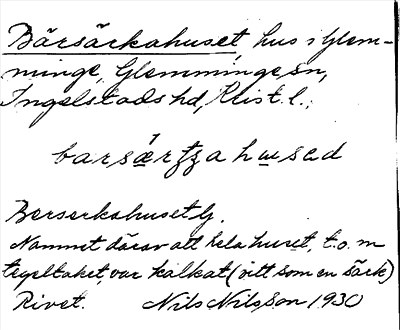 Bärsärkahuset, hus i Glem-
minge, Glemminge sn,
Ingelstads hd, Krist. l.;
Berserkahuset G.
Namnet därav att hela huset, t.o.m
tegeltaket, var kalkat (vitt som en särk)
Rivet. Nils Nilsson 1930